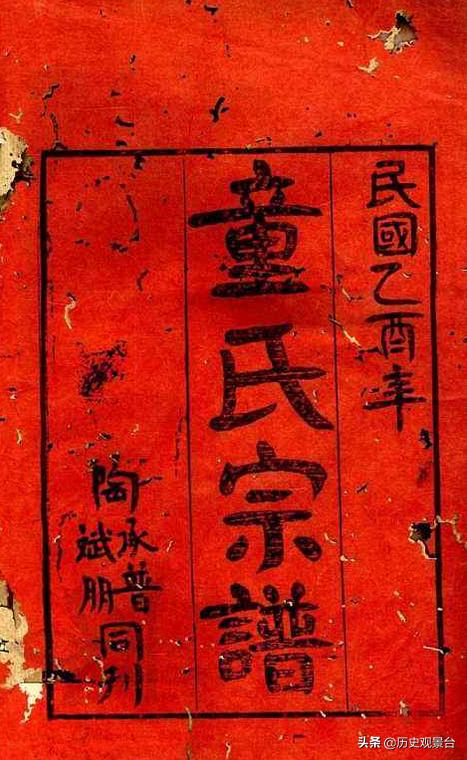 民國乙酉年
童氏宗譜
陶
承普
斌朋
同刊
头条 @历史观景台